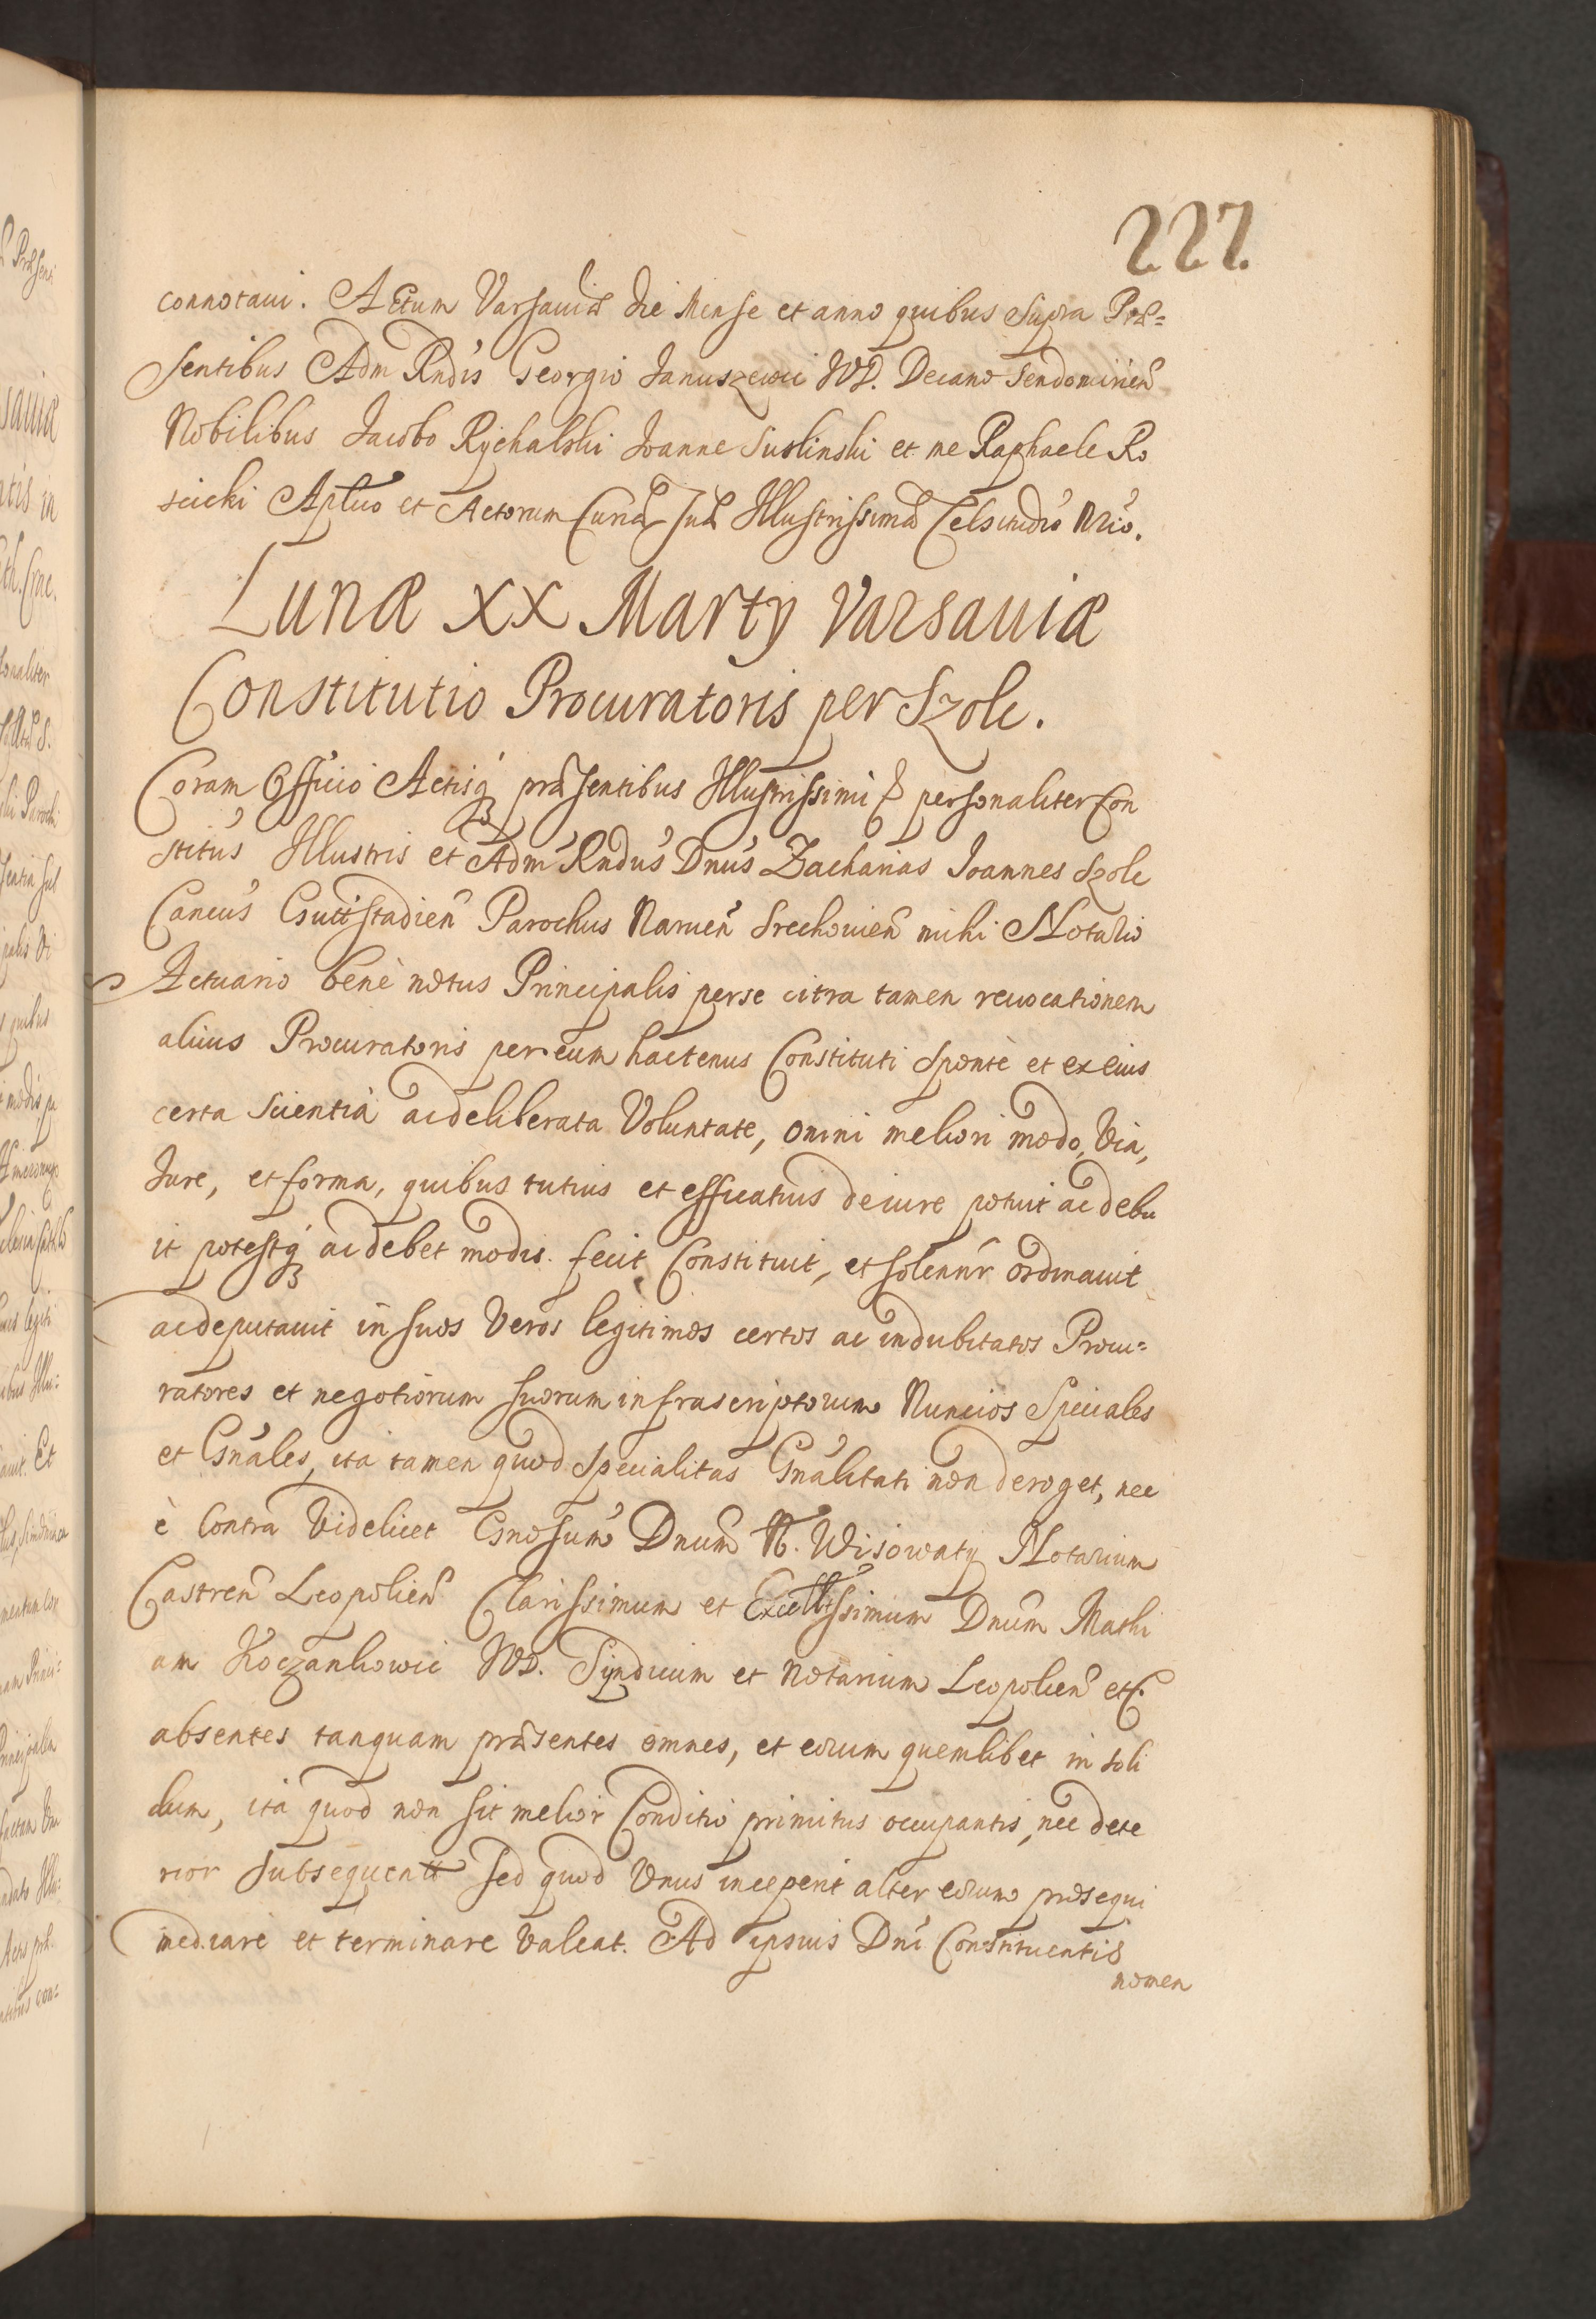 227.
connotaui. Actum Varsauiæ die Mense et anno quibus Supra Præ=
sentibus Adm Rndis Georgio Januszewic WD. Decano Sendomirien̄
Nobilibus Jacobo Rychalski Joanne Suslinski et me Raphaele Ro
scicki Aptico et Actorum Curiæ Suæ Illustrissimæ Celsitudis Nrio.
Lunæ XX Marty Varsauiæ
Constitutio Procuratoris per Szolc.
Coram Officio Actisq́ præsentibus Illustrissimi & personaliter Con
stitús Illustris et Adm Rndús Dnús Zacharias Joannes Szolc
Cancús Guttstadien̄ Parochus Naruen̄ Srechouien̄ mihi Notario
Actuario benè notus Principalis perse citra tamen reuocationem
alicuius Procuratoris per eum hactenus Constituti Sponté et ex eius
certa Scientià ac deliberata Voluntate, omni meliori modo, Via,
Jure, et forma, quibus tutius et efficatius de iure potuit ac debu
it potestq́ ac debet modis. fecit Constituit, et solennr̄ ordinauit
ac deputauit in suos Veros legitimos certos ac indubitatos Procu=
ratores et negotiorum suorum infrascriptorum Nuncios Speciales
et Gnáles, ita tamen quod Specialitas Gnálitati non deroget, nec
è Contra Videlicet Gnosum̄ Dnum̄ N. Wisowaty Notarium
Castren̄ Leopolien̄ Clarissimum et Excellssimum Dnum̄ Mathi
am Koczankowic WD. Syndicum et Notarium Leopolien̄ etc.
absentes tanquam præsentes omnes, et eorum quemlibet in soli
dum, ita quod non sit melior Conditio primitus occupantis, nec dete
rior subsequentis sed quod Vnus inceperit alter eorum prosequi
mediare et terminare Valeat. Ad ipsius Dni Constituentis
nomen